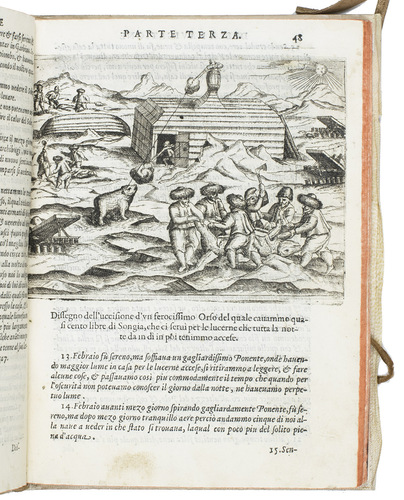 PARTE TERZA.
48
Dissegno dell'uccisione d'vn ferocissimo Orso del quale cauammo qua-
si cento libre di Songia, che ci seruì per le lucerne che tutta la not-
te da indi in poi tenimmo accese.
13. Febraio fù sereno, ma soffiaua un gagliardissimo Ponente, onde hauen-
do maggior lume in casa per le lucerne accese, si ritirammo a leggere, & fare
alcune cose, & passauamo così piu commodamente il tempo che quando per
l'oscurità non potenamo conoscer il giorno dalla notte, ne hauenamo perpe-
tuo lume.
14. Febraio auanti mezo giorno spirando gagliardamente Ponente, fù se-
reno, ma dopo mezo giorno tranquillo aere perciò andammo cinque di noi al-
la naue a ueder in che stato si trouaua, laqual con poco piu del solito pie-
na d'acqua.
15. Sen-